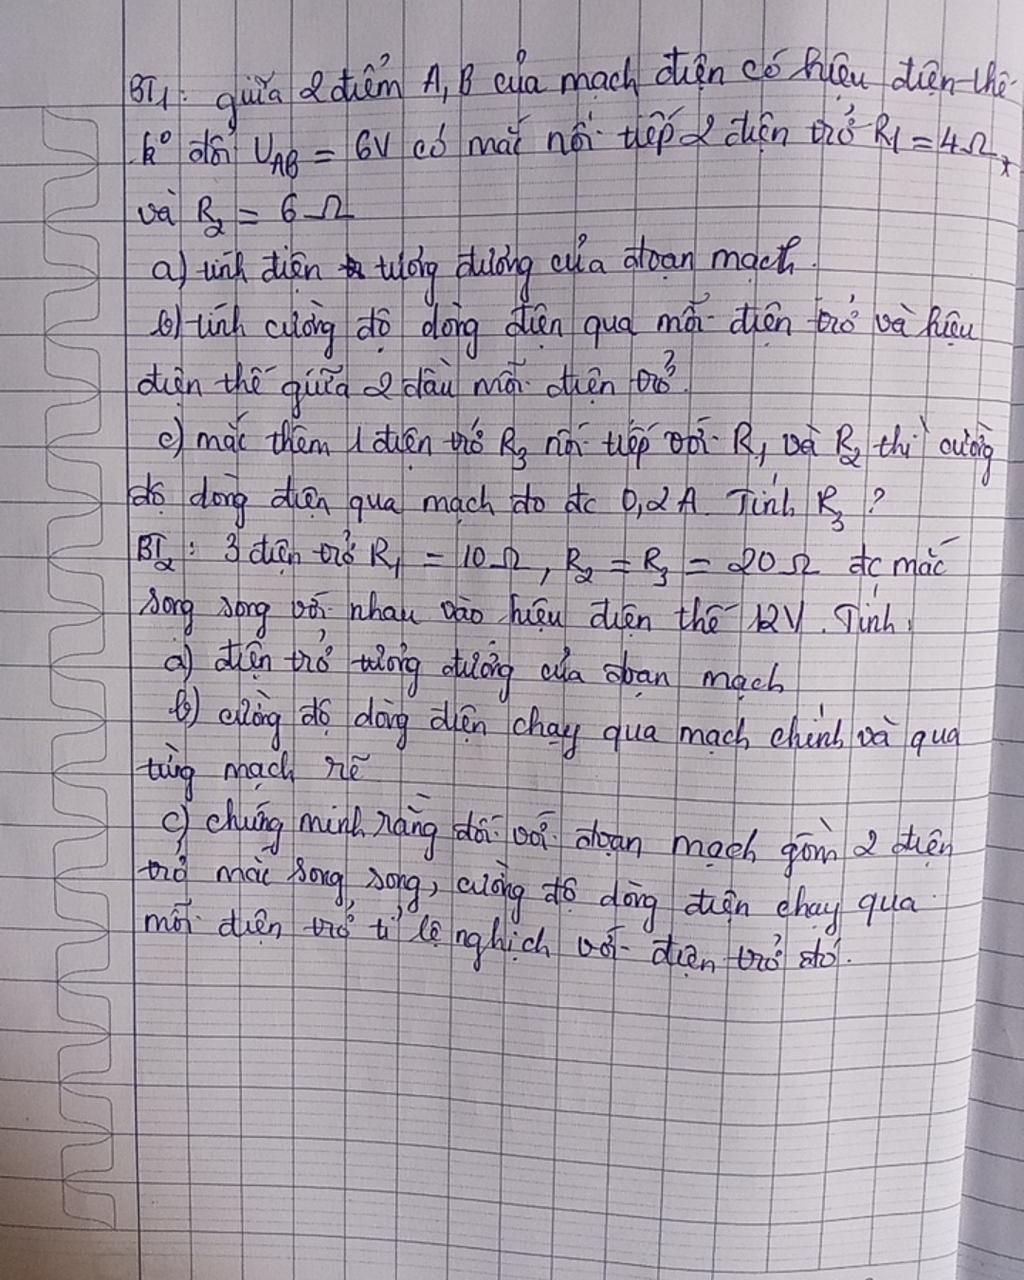 BT1: giữa 2 điểm A, B của mạch điện có hiệu điện thế
k° đổi UAB = 6V có mắc nối tiếp 2 điện trở R1 = 4Ω
và R2 = 6 Ω
a) tính điện tương đương của đoạn mạch.
b) tính cường độ dòng điện qua mỗi điện trở và hiệu
điện thế giữa 2 đầu mỗi điện trở?
c) mắc thêm 1 điện trở R3 nối tiếp với R1 và R2 thì cường
độ dòng điện qua mạch đo đc 0,2 A. Tính R3 ?
BT2 : 3 điện trở R1 = 10 Ω, R2 = R3 = 20 Ω đc mắc
song song với nhau vào hiệu điện thế 12V. Tính.
a) điện trở tương đương của đoạn mạch
b) cường độ dòng điện chạy qua mạch chính và qua
từng mạch rẽ
c) chứng minh rằng đối với đoạn mạch gồm 2 điện
trở mắc song song, cường độ dòng điện chạy qua
mỗi điện trở tỉ lệ nghịch với điện trở đó.